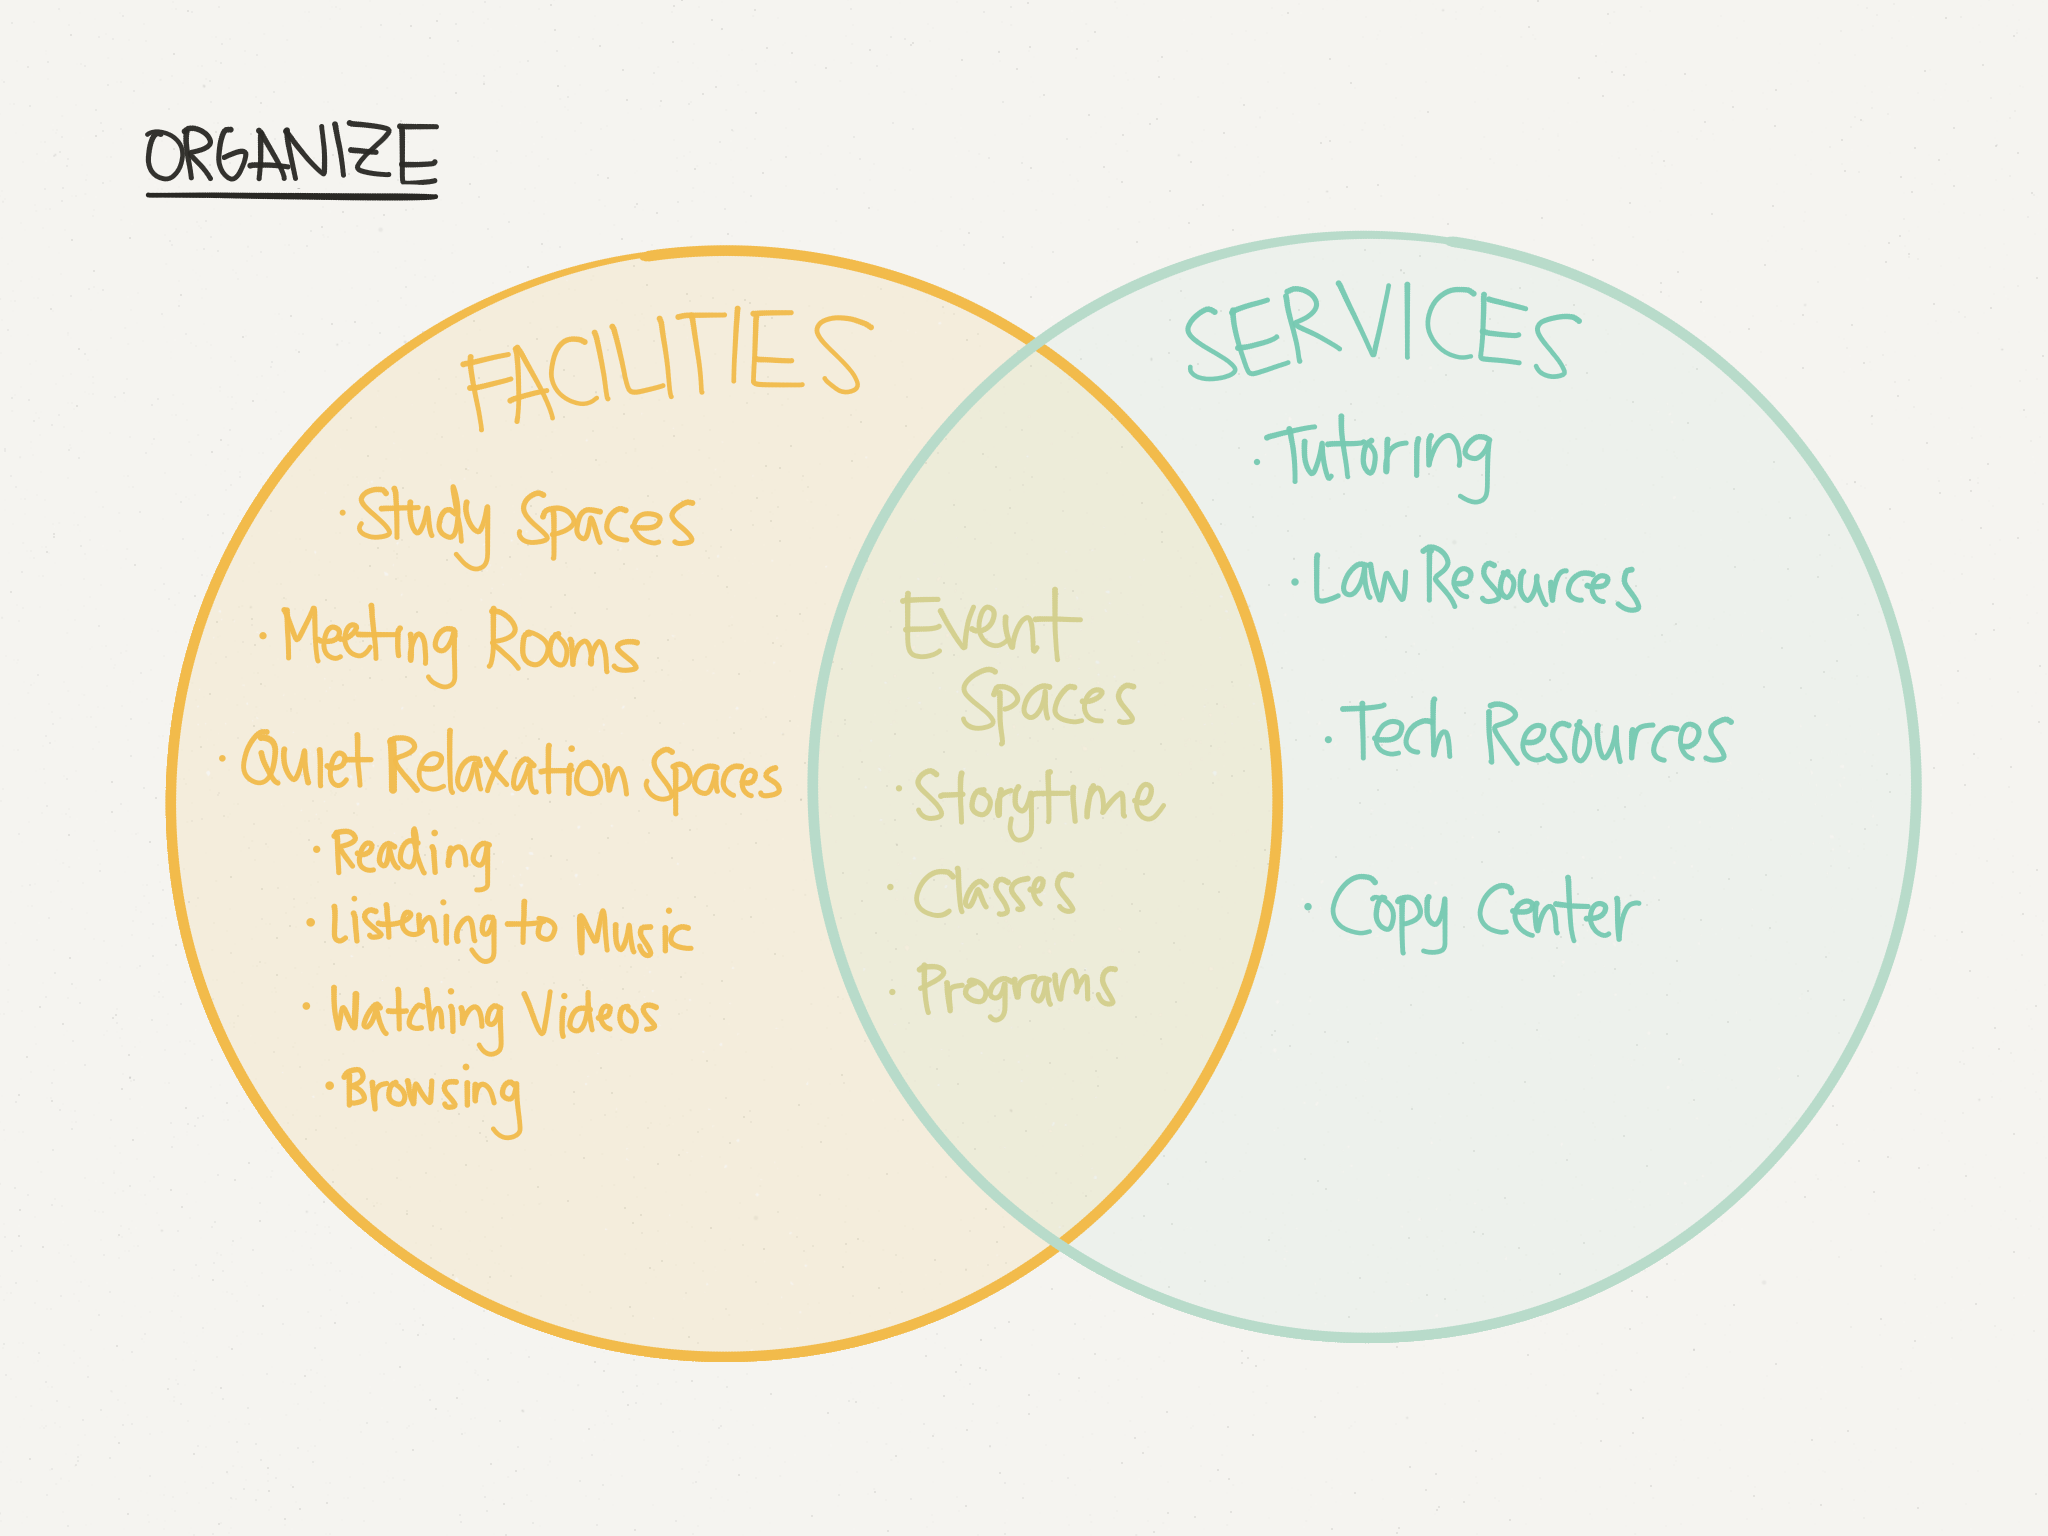 ORGANIZE
FACILITIES
· Study Spaces
· Meeting Rooms
· Quiet Relaxation Spaces
· Reading
· Listening to Music
· Watching Videos
· Browsing
Event
Spaces
· Storytime
· Classes
· Programs
SERVICES
· Tutoring
· Law Resources
· Tech Resources
· Copy Center